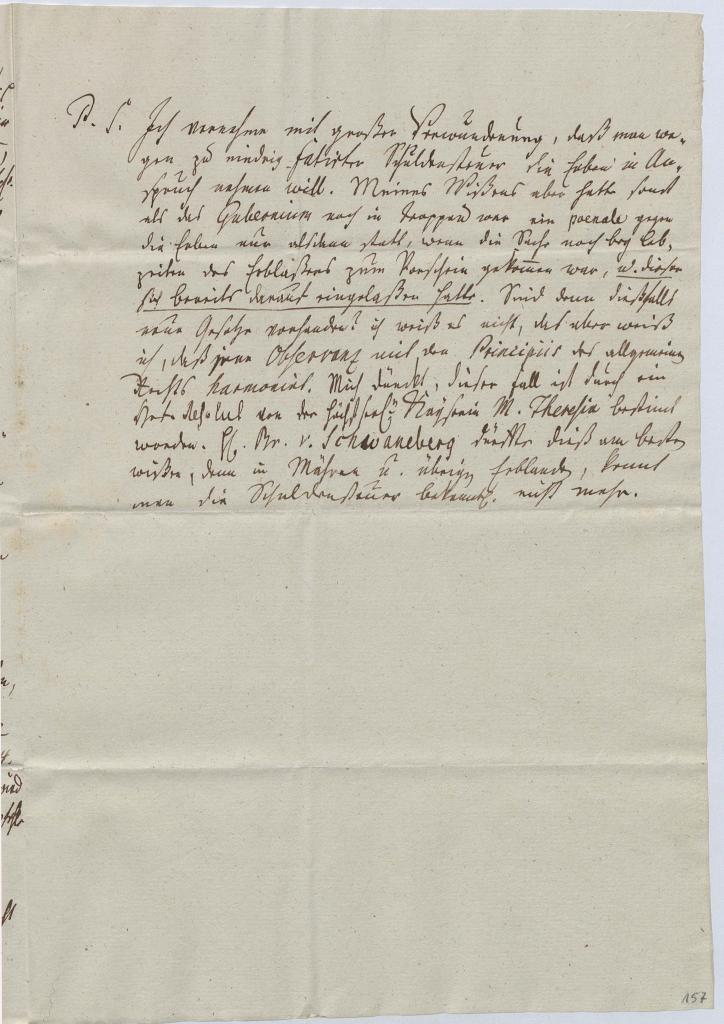 P. S. Ich vernehme mit großer Verwunderung, daß man we-
gen zu niedrig fatirter Schuldensteuer die Erben in An-
spruch nehmen will. Meines Wißens aber hatte sonst
als das Gubernium noch in Troppau war ein poenale gegen
die Erben nur alsdann statt, wenn die Sache noch bey Leb-
zeiten des Erblaßers zum Vorschein gekommen war, u. dieser
sich bereits darauf eingelaßen hatte. Sind denn dießfalls
neue Gesetze vorhanden? ich weiß es nicht, das aber weiß
ich, daß jene Observanz mit den Principiis des allgemeinen
Rechts harmonirt. Mich dünckt, dieser Fall ist durch ein
Resolut von der Höchstseel. Kayserin M. Theresia bestimt
worden. H. Br. v. Schwaneberg dürfte dieß am besten
wißen, denn in Mähren u. übrigen Erblanden, kennt
man die Schuldensteuer bekanntl. nicht mehr.
und
157